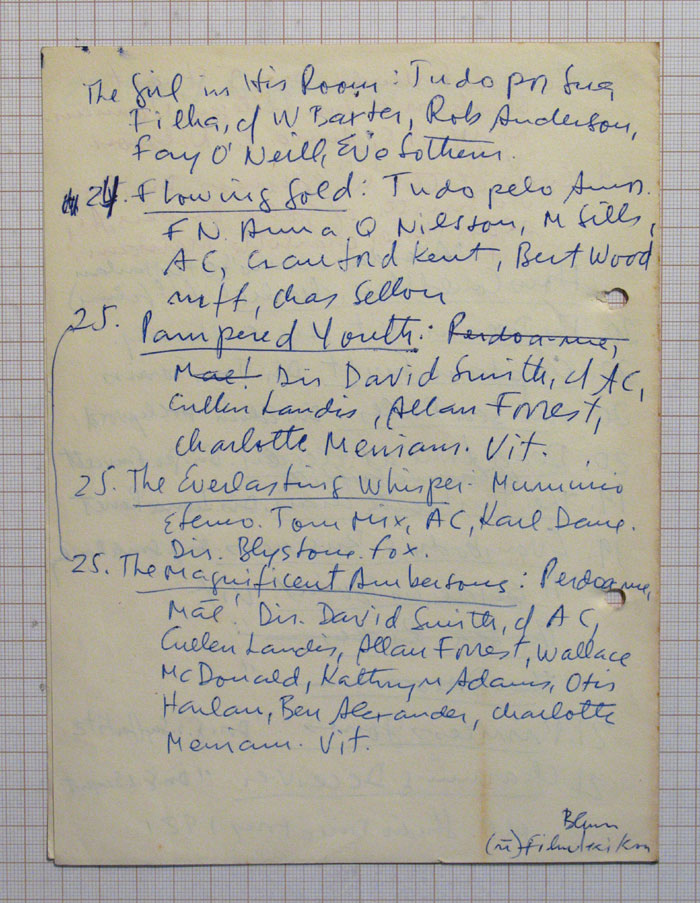 The Girl in His Room: Tudo por Sua
Filha, c/ W Baxter, Rob Anderson,
Fay O'Neill, Eve Sothern.
24. Flowing Gold: Tudo pelo Amor.
FN. Anna Q Nilsson, M Sills,
AC, Cranford Kent, Bert Wood
ruff, Chas Sellon
25. Pampered Youth: Perdoa-me,
Mãe! Dir. David Smith, c/ AC,
Cullen Landis, Allan Forrest,
Charlotte Merriam. Vit.
25. The Everlasting Whisper. Murmurio
Eterno. Tom Mix, AC, Karl Dane.
Dir. Blystone. Fox.
25. The Magnificent Ambersons: Perdoa-me,
Mãe! Dir. David Smith, c/ AC,
Cullen Landis, Allan Forrest, Wallace
McDonald, Kathryn Adams, Otis
Harlan, Ben Alexander, Charlotte
Merriam. Vit.
Blum
Filmlexikon